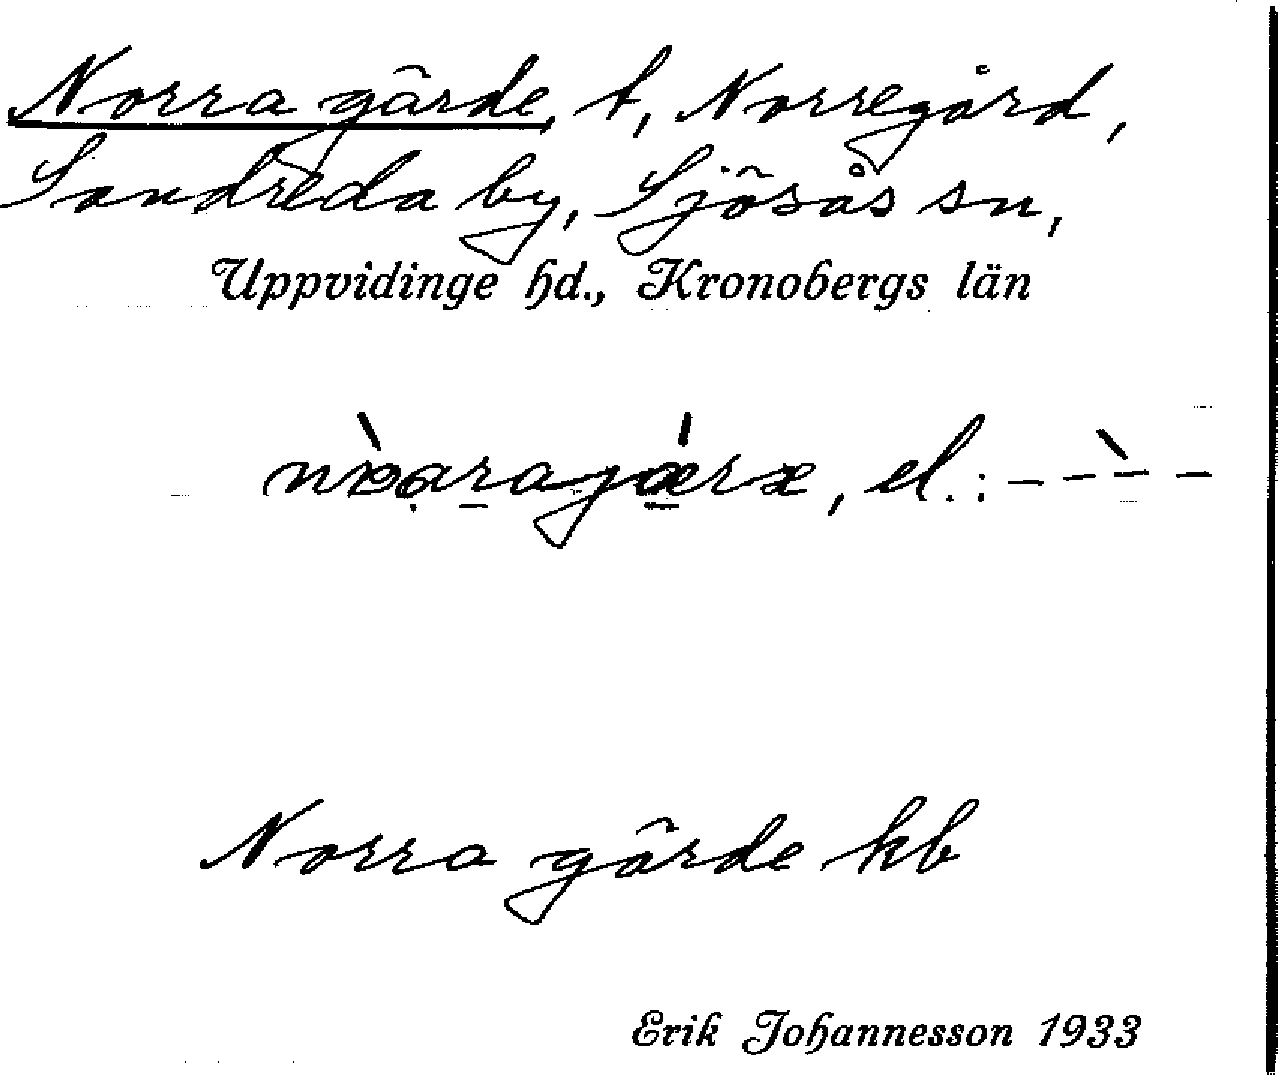 Norra gärde, t, Norregård,
Sandreda by, Sjösås sn,
Uppvidinge hd., Kronobergs län
el.: - - - -
Norra gärde kb
Erik Johannesson 1933